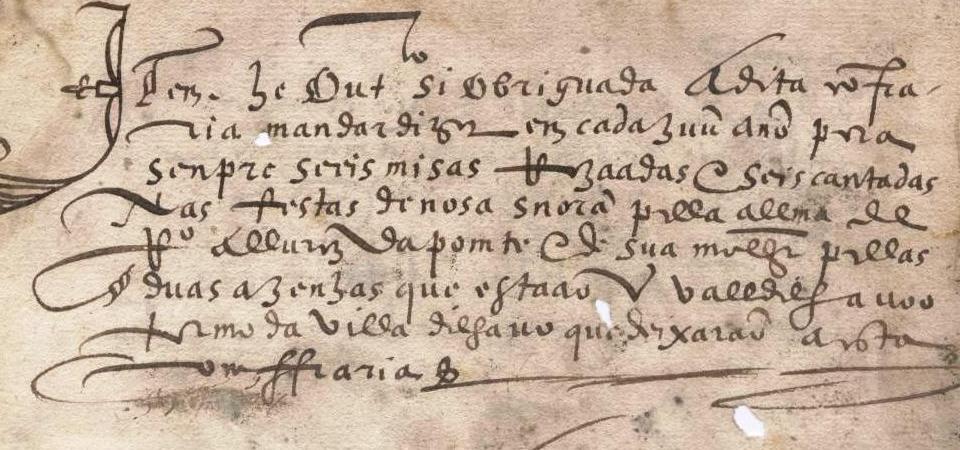 Item he Outo si Obriguada A dita comfra
ria mandar dizer em cada huũ año pera
senpre seis misas Rezaadas E seis cantadas
Nas festas de nosa snorã pella allma del
Ro Alluarez da pomte E de sua molher pellas
duas azenhas que estaao Val dilhauoo
termo da villa dilhauo que deixaraõ a esta
comffraria